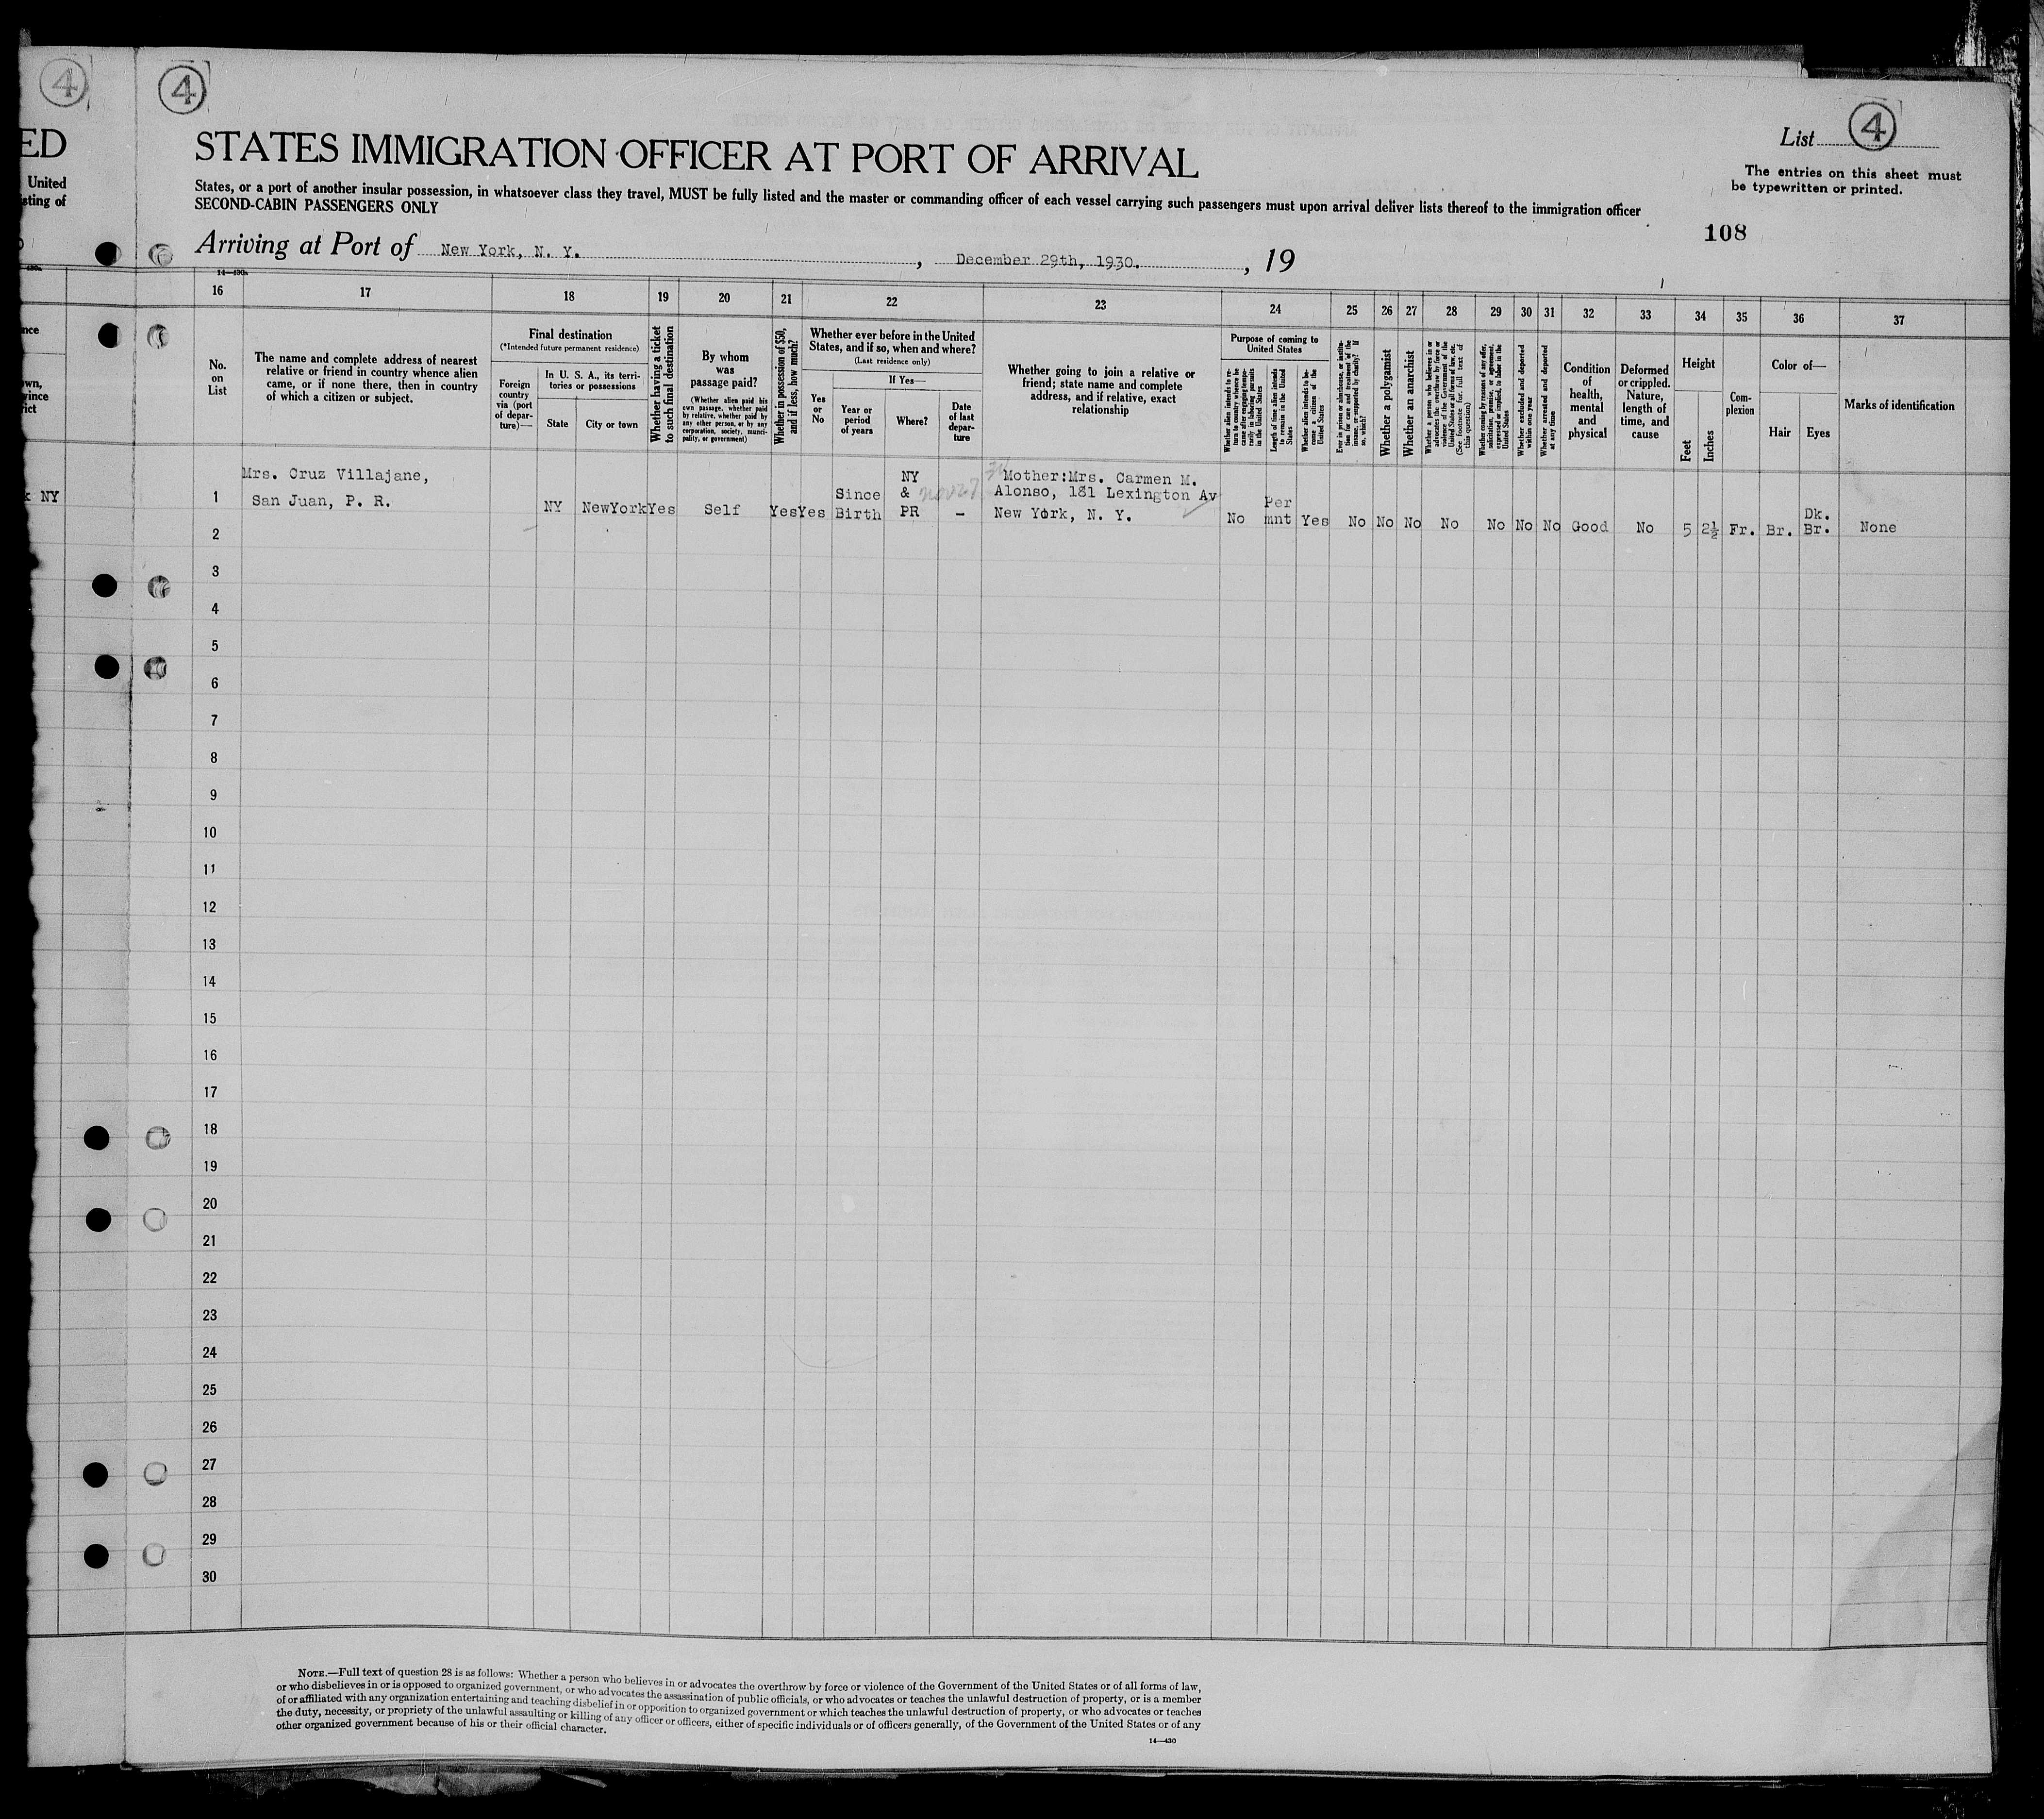 4
4
List 4
ED
STATES IMMIGRATION OFFICER AT PORT OF ARRIVAL
The entries on this sheet must
be typewritten or printed.
United
sting of
States, or a port of another insular possession, in whatsoever class they travel, MUST be fully listed and the master or commanding officer of each vessel carrying such passengers must upon arrival deliver lists thereof to the immigration officer
SECOND-CABIN PASSENGERS ONLY
108
Arriving at Port of New York, N. Y. , December 29th, 1930. , 19
14—430a
16 17 18 19 20 21 22 23 24 25 26 27 28 29 30 31 32 33 34 35 36 37
No.
on
List
The name and complete address of nearest
relative or friend in country whence alien
came, or if none there, then in country
of which a citizen or subject.
Final destination
(*Intended future permanent residence)
Foreign
country
via (port
of depar-
ture)—
In U. S. A., its terri-
tories or possessions
State
City or town
Whether having a ticket
to such final destination
By whom
was
passage paid?
(Whether alien paid his
own passage, whether paid
by relative, whether paid by
any other person, or by any
corporation, society, munici-
pality, or government)
Whether in possession of $50,
and if less, how much?
Whether ever before in the United
States, and if so, when and where?
(Last residence only)
Yes
or
No
If Yes—
Year or
period
of years
Where?
Date
of last
depar-
ture
Whether going to join a relative or
friend; state name and complete
address, and if relative, exact
relationship
Purpose of coming to
United States
Whether alien intends to re-
turn to country whence he
came after engaging tempo-
rarily in laboring pursuits
in the United States
Length of time alien intends
to remain in the United
States
Whether alien intends to be-
come a citizen of the
United States
Ever in prison or almshouse, or institu-
tion for care and treatment of the
insane, or supported by charity? If
so, which?
Whether a polygamist
Whether an anarchist
Whether a person who believes in or
advocates the overthrow by force or
violence of the Government of the
United States or all forms of law, etc.
(See footnote for full text of
this question)
Whether coming by reasons of any offer,
solicitation, promise, or agreement,
expressed or implied, to labor in the
United States
Whether excluded and deported
within one year
Whether arrested and deported
at any time
Condition
of
health,
mental
and
physical
Deformed
or crippled.
Nature,
length of
time, and
cause
Height
Feet
Inches
Com-
plexion
Color of—
Hair
Eyes
Marks of identification
NY
1 Mrs. Cruz Villajane,
San Juan, P. R.
NY NewYork Yes Self Yes Yes
Since
Birth
NY
&
PR
–
Mother:Mrs. Carmen M.
Alonso, 181 Lexington Av
New York, N. Y.
No
Per
mnt
Yes No No No No No No No Good No 5 2½ Fr. Br.
Dk.
Br.
None
2
3
4
5
6
7
8
9
10
11
12
13
14
15
16
17
18
19
20
21
22
23
24
25
26
27
28
29
30
NOTE.—Full text of question 28 is as follows: Whether a person who believes in or advocates the overthrow by force or violence of the Government of the United States or of all forms of law,
or who disbelieves in or is opposed to organized government, or who advocates the assassination of public officials, or who advocates or teaches the unlawful destruction of property, or is a member
of or affiliated with any organization entertaining and teaching disbelief in or opposition to organized government or which teaches the unlawful destruction of property, or who advocates or teaches
the duty, necessity, or propriety of the unlawful assaulting or killing of any officer or officers, either of specific individuals or of officers generally, of the Government of the United States or of any
other organized government because of his or their official character.
14—430